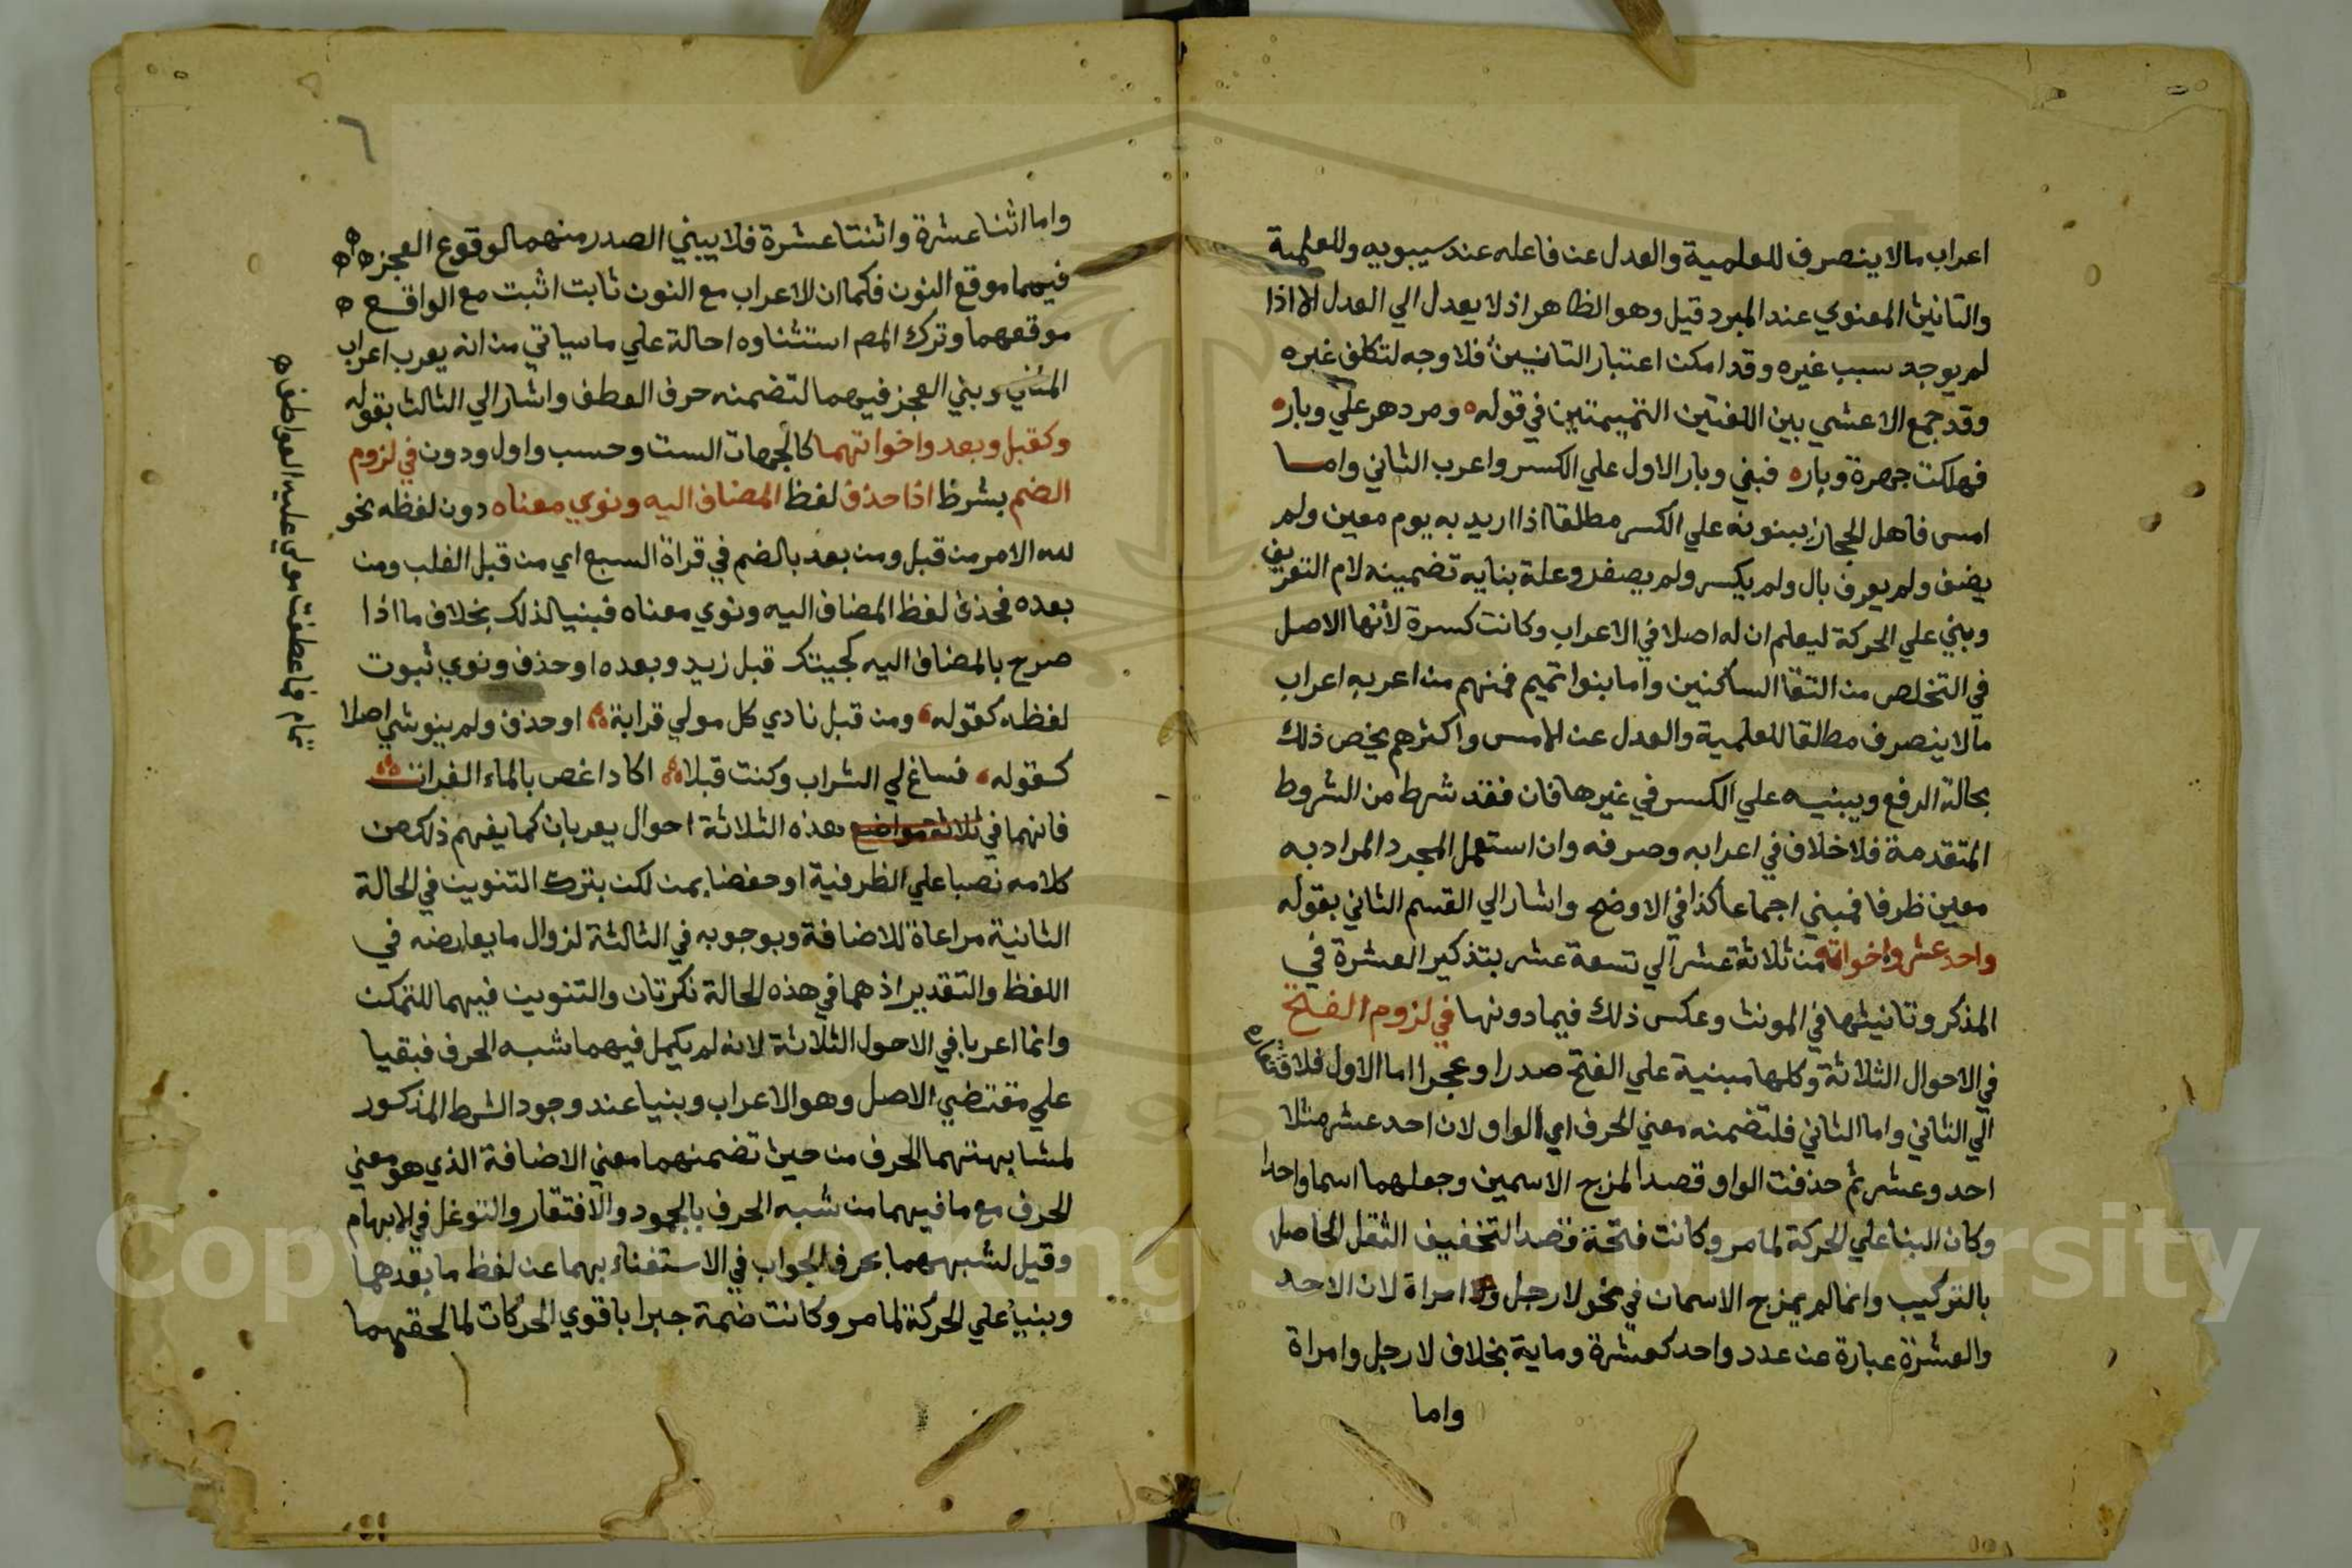 اعراب مالا ينصرف للعلمية والعدل عن فاعله عند سيبويه وللعلمية
والتانيث المعنوي عند المبرد قيل وهو الظاهر اذ لا يعدل الي العدل الا اذا
لم يوجد سبب غيره وقد امكن اعتبار التانيث فلا وجه لتكلف غيره
وقد جمع الاعشي بين اللغتين التميمتين في قوله ومر دهر علي وبار
فهلكت جهرة وبار فبني وبار الاول علي الكسر واعرب الثاني واما
امس فاهل الحجاز يبنونه علي الكسر مطلقا اذا اريد به يوم معين ولم
يضف ولم يعرف بال ولم يكسر ولم يصغر وعلة بنايه تضمينه لام التعريف
وبني علي الحركة ليعلم ان له اصلا في الاعراب وكانت كسرة لانها الاصل
في التخلص من التقا الساكنين واما بنوا تميم فمنهم من اعربه اعراب
مالا ينصرف مطلقا للعلمية والعدل عن الامس واكثرهم يخص ذلك
بحالة الرفع ويبنيه علي الكسر في غيرها فان فقد شرط من الشروط
المتقدمة فلا خلاف في اعرابه وصرفه وان استعمل المجرد المراد به
معين ظرفا فمبني اجماعا كذا في الاوضح واشار الي القسم الثاني بقوله
واحد عشر واخواته من ثلاثة عشر الي تسعة عشر بتذكير العشرة في
المذكر وتانيثها في المونث وعكس ذلك فيما دونها في لزوم الفتح
في الاحوال الثلاثة وكلها مبنية علي الفتح صدرا وعجزا اما الاول فلافتقاره
الي الثاني واما الثاني فلتضمنه معني الحرف اي الواو لان احد عشر مثلا
احد وعشر ثم حذفت الواو قصدا لمزج الاسمين وجعلهما اسما واحدا
وكان البنا علي الحركة لما مر وكانت فتحة قصد التخفيف الثقل الحاصل
بالتركيب وانما لم يمزج الاسمان في نحو لا رجل ولا امراة لان الاحد
والعشرة عبارة عن عدد واحد كعشرة وماية بخلاف لا رجل وامراة
واما
٦
واما اثنا عشرة واثنتا عشرة فلا يبني الصدر منهما لوقوع العجز
فيهما موقع النون فكما ان الاعراب مع النون ثابت اثبت مع الواقع
موقعهما وترك المص استثناوه احالة علي ما سياتي من انه يعرب اعراب
المثني وبني العجز فيهما لتضمنه حرف العطف واشار الي الثالث بقوله
وكقبل وبعد واخواتهما كالجهات الست وحسب واول ودون في لزوم
الضم بشرط اذا حذف لفظ المضاف اليه ونوي معناه دون لفظه نحو
لله الامر من قبل ومن بعد بالضم في قراة السبع اي من قبل الغلب ومن
بعده فحذف لفظ المضاف اليه ونوي معناه فبنيا لذلك بخلاف ما اذا
صرح بالمضاف اليه كجيتك قبل زيد وبعده او حذف ونوي ثبوت
لفظه كقوله ومن قبل نادي كل مولي قرابة او حذف ولم ينو شي اصلا
كقوله فساغ لي الشراب وكنت قبلا اكاد اغص بالماء الفرات
فانهما في ثلاثة مواضع هذه الثلاثة احوال يعربان كما يفهم ذلك من
كلامه نصبا علي الظرفية او خفضا بمن لكن بترك التنوين في الحالة
الثانية مراعاة للاضافة وبوجوبه في الثالثة لزوال ما يعارضه في
اللفظ والتقدير اذ هما في هذه الحالة نكرتان والتنوين فيهما للتمكن
وانما اعربا في الاحول الثلاثة لانه لم يكمل فيهما شبه الحرف فبقيا
علي مقتضي الاصل وهو الاعراب وبنيا عند وجود الشرط المذكور
لمشابهتهما الحرف من حيث تضمنهما معني الاضافة الذي هو معني
الحرف مع ما فيهما من شبه الحرف بالجمود والافتقار والتوغل في الابهام
وقيل لشبههما بحرف الجواب في الاستغناء بهما عن لفظ ما بعدهما
وبنيا علي الحركة لما مر وكانت ضمة جبرا باقوي الحركات لما لحقهما
تمام فما عطفت مولي عليه العواطف
Copyright © King Saud University
1957